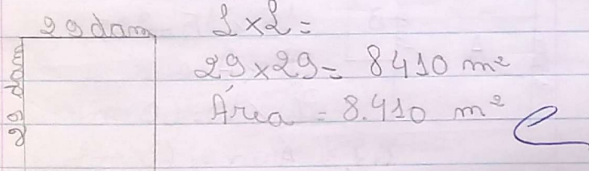 29 dam
29 dam
L × L =
29 × 29 = 8410 m²
Área = 8.410 m²